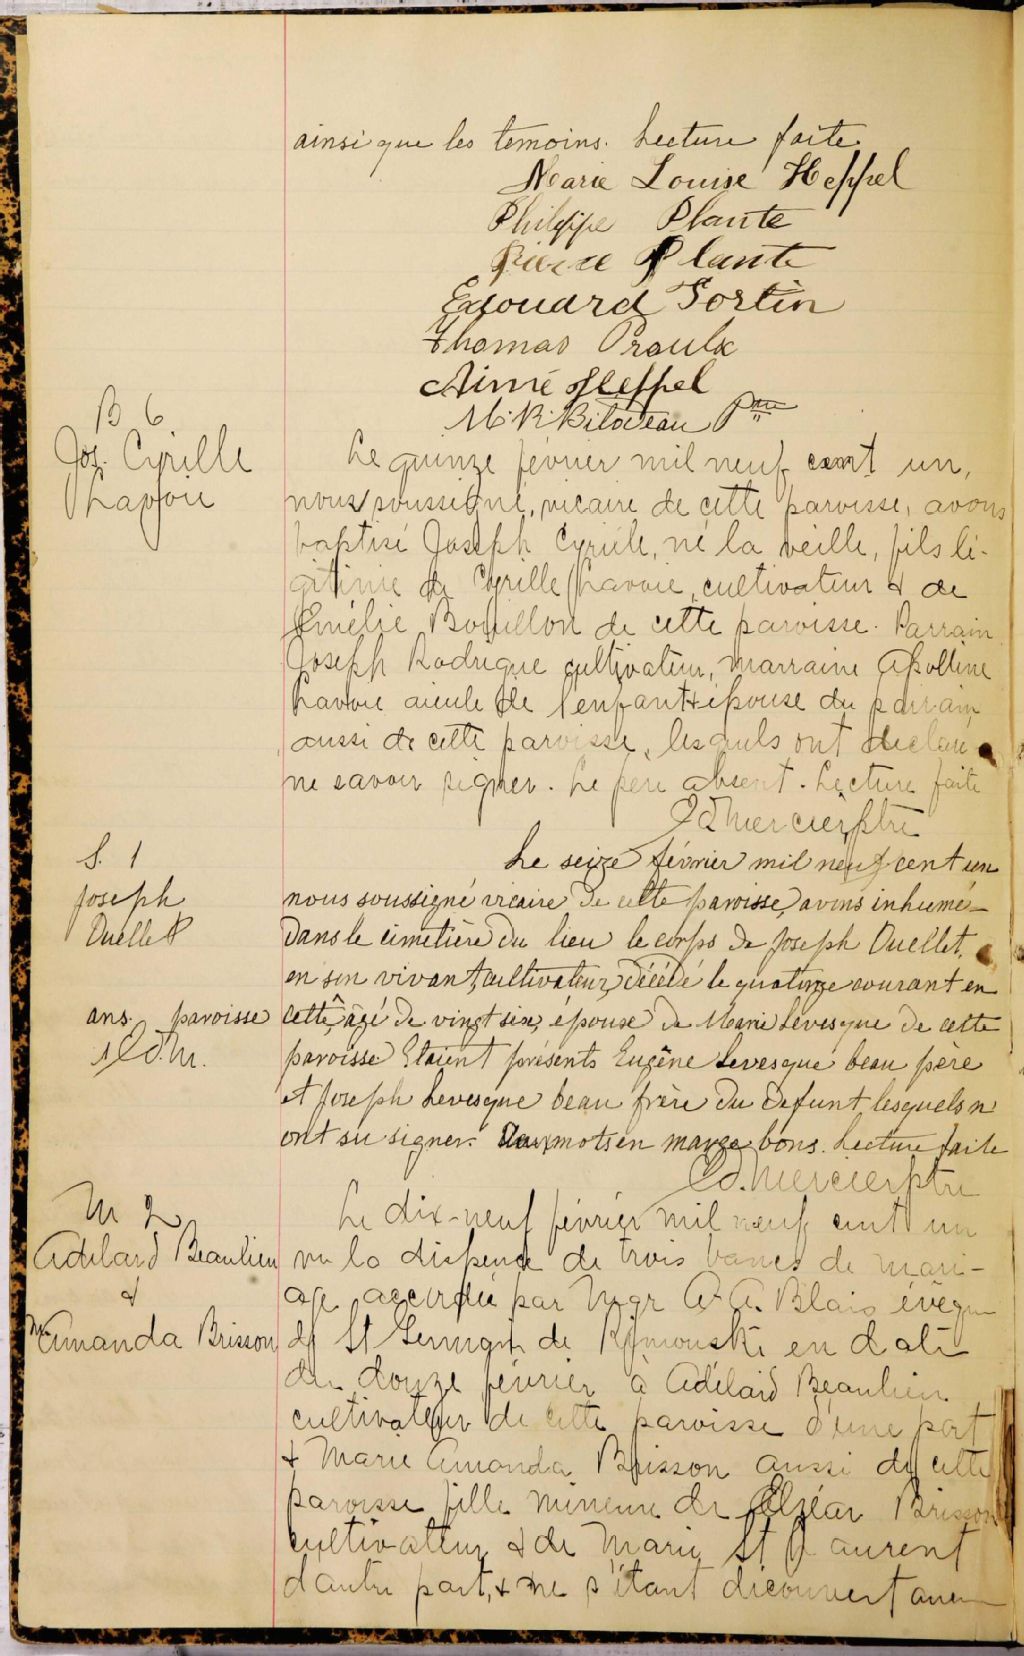 ainsi que les temoins. Lecture faite
Marie Louise Heppel
Philippe Plante
Pierre Plante
Edouard Fortin
Thomas Proulx
Aimé Heppel
M. R. Bilodeau Ptre
B 6
Jos. Cyrille
Lavoie
Le quinze février mil neuf cent un,
nous soussigné, vicaire de cette paroisse, avons
baptisé Joseph Cyrille, né la veille, fils lé-
gitime de Cyrille Lavoie, cultivateur & de
Emélie Bouillon de cette paroisse. Parrain
Joseph Rodrigue cultivateur, marraine Apolline
Lavoie aieule de l'enfant & épouse du parrain
aussi de cette paroisse, lesquels ont déclaré
ne savoir signer. Le père absent. Lecture faite
Ed Mercier ptre
S. 1
Joseph
Ouellet
Le seize février mil neuf cent un
nous soussigné vicaire de cette paroisse, avons inhumé
dans le cimetière du lieu le corps de Joseph Ouellet,
en son vivant, cultivateur, décédé le quatorze courant en
ans. paroisse
E. M.
cette ^ âgé de vingt six, époux de Marie Levesque de cette
paroisse Etaient présents Eugène Levesque beau père
et Joseph Levesque beau frère du defunt, lesquels n'
ont su signer. Deux mots en marge bons. Lecture faite
Ed. Mercier ptre
M 2
Adelard Beaulieu
&
M. Amanda Brisson
Le dix-neuf février mil neuf cent un
vu la dispense de trois bancs de mari-
age accordée par Mgr A. A. Blais évêque
de St Germain de Rimouski en date
du douze février à Adélard Beaulieu
cultivateur de cette paroisse d'une part
& Marie Amanda Brisson aussi de cette
paroisse fille mineure de Elzéar Brisson
cultivateur & de Marie St Laurent
d'autre part, & ne s'étant découvert aucun